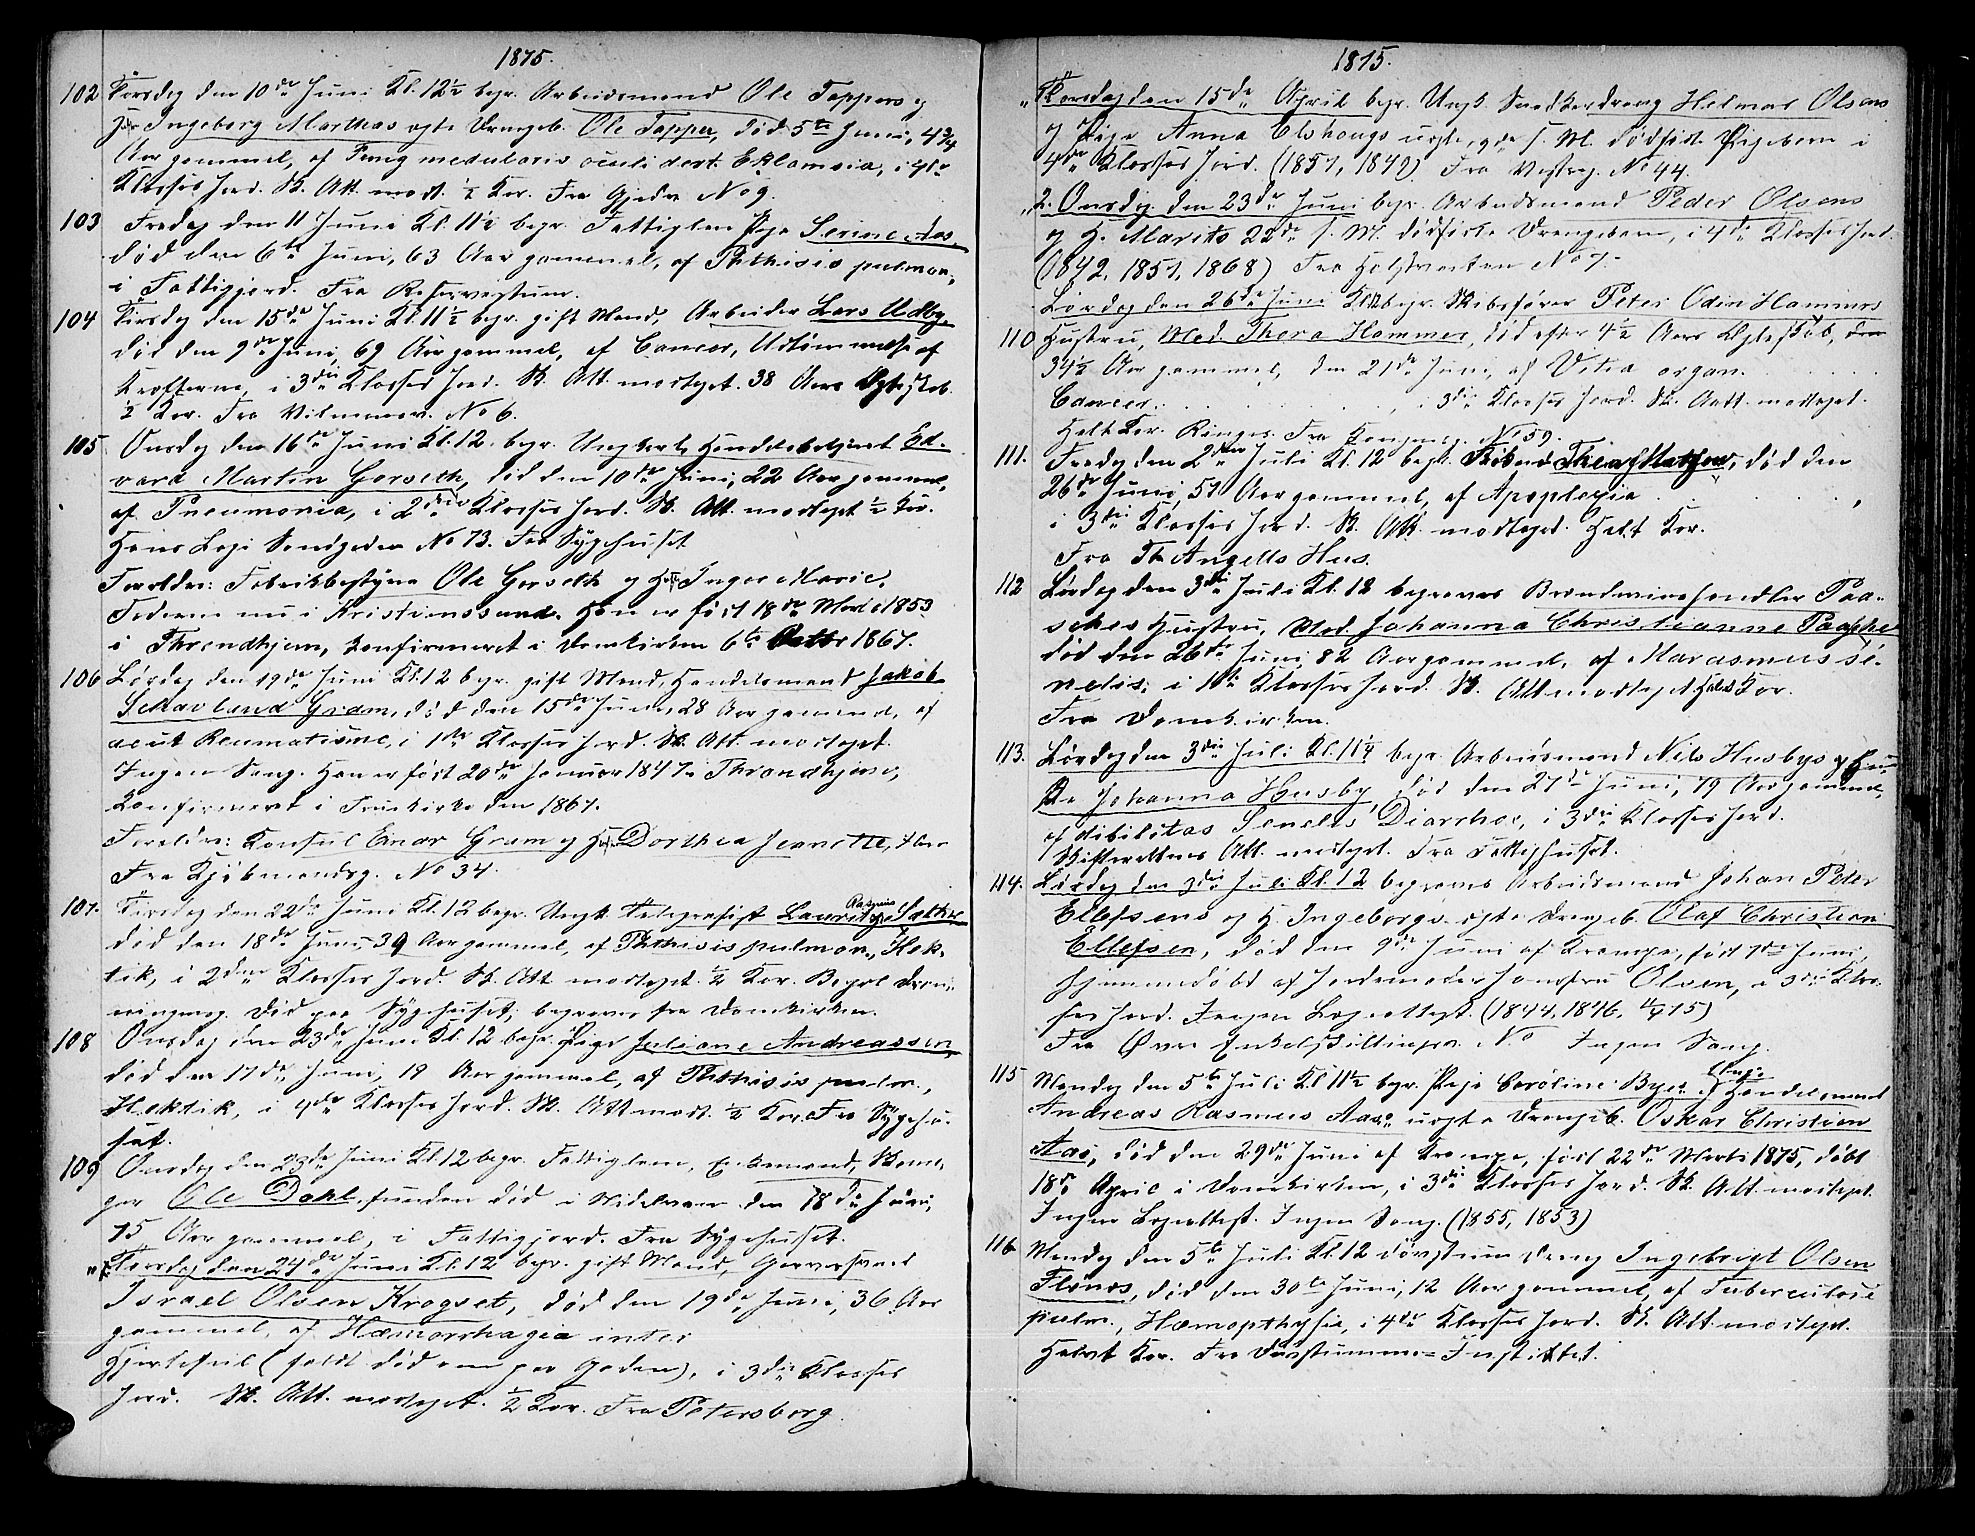 1875.
102 Torsdag den 10de Juni Kl. 12½ begr. Arbeidsmand Ole Toppers og
H. Ingeborg Marthas ægte Drengeb. Ole Topper, død 5te Juni, 4¾
Aar gammel, af Fung medularis oculi dext. Eklamsia, i 4de
Klasses Jord. Sk. Att. modt. ½ Kor. Fra No 9.
103 Fredag den 11 Juni Kl. 11½ begr. Fattiglem Pige Serine Aas,
død den 6te Juni, 63 Aar gammel, af Phthisis pulmon.,
i Fattigjord. Fra
104 Tirsdag den 15de Juni Kl. 11½ begr. gift Mand, Arbeider Lars Udby,
død den 9de Juni, 69 Aar gammel, af Cancer, Udtømmelse af
Kræfterne, i 3die Klasses Jord. Sk. Att. modtaget. 38 Aars Ægteskab.
½ Kor. Fra No 6.
105 Onsdag den 16de Juni Kl. 12. begr. Ungkarl Handelsbetjent Ed-
vard Martin Gorseth, død den 10de Juni, 22 Aar gammel,
af Pneumonia, i 2den Klasses Jord. Sk. Att. modtaget ½ Kor.
Hans Logi Sandgaden No 73. Fra Sygehuset
Forældre: Fabrikbestyrer Ole Gorseth og H. Inger Marie,
Faderen nu i Kristianssund. Han er født 18de 1853
i Throndhjem, konfirmeret i Domkirken 6te Octbr 1867.
106 Lørdag den 19de Juni Kl. 12 begr. gift Mand, Handelsmand Jakob
Gram, død den 15de Juni, 28 Aar gammel, af
acut Reumatisme, i 1ste Klasses Jord. Sk. Att. modtaget.
Ingen Sang. Han er født 20de Januar 1847 i Throndhjem,
Konfirmeret i Fruekirke den 1861.
Forældre: Konsul Einar Gram og H. Dorthea Jeanette,
Fra Kjøbmandsg. No 34.
107. Tirsdag den 22de Juni Kl. 12 begr. Ungk. Telegrafist Lauritz Rasmus Sather
død den 18de Juni, 39 Aar gammel, af Phthisis pulmon., Hek-
tik, i 2den Klasses Jord. Sk. Att modtaget ½ Kor. Dron-
ningensg. Død paa Sygehuset, begraves fra Domkirken.
108 Onsdag den 23de Juni Kl. 12 begr. Pige Juliane Andreassen
død den 17de Juni, 19 Aar gammel, af Phthisis pulm.,
Hektik, i 4de Klasses Jord. Sk. Att modt. ½ Kor. Fra Sygehu-
set.
109 Onsdag den 23de Juni Kl. 12 begr. Fattiglem, Enkemand,
Ole Dahl, funden død i Nidelven den 18de Juni,
75 Aar gammel, i Fattigjord. Fra Sygehuset.
Torsdag den 24de Juni Kl. 12 begr. gift Mand, Garversvend
Israel Olsen Krogset, død den 19de Juni, 36 Aar
gammel, af Hæmorrhagia inter
Hjertefeil (faldt død om paa Gaden), i 3die Klasses
Jord. Sk. Att. modtaget. ½ Kor. Fra Petersborg.
1875.
Torsdag den 15de April begr. Ungk. Snedkerdreng Helmer Olsens
og Pige Anna Elshougs uægte, 9de s. M. dødfødt Pigebarn i
4de Klasses Jord. (1851, 1849) Fra No 44.
2. Onsdag den 23de Juni begr. Arbeidsmand Peder Olsens
og H. Marits 22de s. M. dødfødte Drengebarn, i 4de Klasses Jord.
(1842, 1851, 1868) Fra No 7.
Lørdag den 26de Juni Kl. 12 begr. Skibsfører Peter Odin Hammers
110 Hustru, Mad. Thora Hammer, død efter 4½ Aars Ægteskab,
34½ Aar gammel, den 21de Juni, af Vitia organ.
Cancer. , i 3die Klasses Jord. Sk. Att. modtaget.
Halvt Kor. Ringes. Fra Kongensg. No 59.
111. Fredag den 2den Juli Kl. 12 begr. Thea Mathea, død den
26de Juni, 57 Aar gammel, af Apoplexia
i 3die Klasses Jord. Sk. Att. modtaget. Halvt Kor.
Fra Th. Angells Hus.
112 Lørdag den 3die Juli Kl. 12 begraves Brændevinshandler Paa-
sches Hustru, Mad. Johanna Christianne Paasche
død den 26de Juni, 82 Aar gammel, af Marasmus se-
nelis, i 1ste Klasses Jord. Sk. Att modtaget Halvt Kor.
Fra Domkirken.
113. Lørdag den 3die Juli Kl. 11½ begr. Arbeidsmand Nils Husbys
Johanna Husby, død den 27de Juni, 79 Aar gammel,
af dibilitas Senelis Diarrhoe, i 3die Klasses Jord.
Skifterettens Att. modtaget. Fra Fattighuset.
114. Lørdag den 3die Juli Kl. 12 begraves Arbeidsmand Johan Peter
Ellefsens og H. Ingeborgs ægte Drengeb. Olaf Christian
Ellefsen, død den 9de Juni af Krampe, født 7de Juni,
hjemmedøbt af Jordemoder Jomfru Olsen, i 3die Klas-
ses Jord. Ingen Lægeattest. (1844, 1846, 75)
Fra Øvre Enkelskillingen No Ingen Sang.
115 Mandag den 5te Juli Kl 11½ begr. Pige Caroline Byes og Handelsmand
Andreas Rasmus Aas uægte Drengeb. Oskar Christian
Aas, død den 29de Juni af Krampe, født 22de Marts 1875, døbt
18de April i Domkirken, i 3die Klasses Jord. Sk. Att. modtaget.
Ingen Lægeattest. Ingen Sang. (1855, 1853)
116 Mandag den 5te Juli Kl. 12 døvstum Dreng Ingebrigt Olsen
Flenos, død den 30te Juni, 12 Aar gammel, af Tuberculosis
pulm., Hæmopthysie, i 4de Klasses Jord. Sk. Att modtaget.
Halvt Kor. Fra Døvstumme-Institutet.